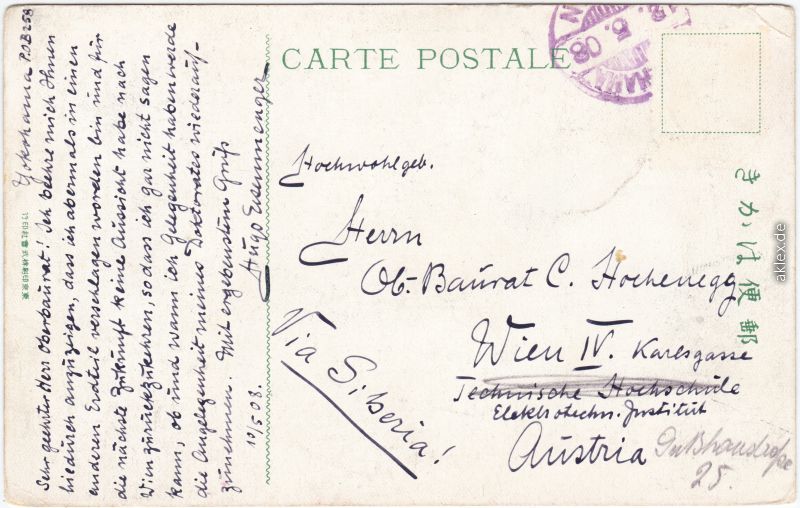 CARTE POSTALE
Yokohama P.O.B 258
Sehr geehrter Herr Oberbaurat! Ich beehre mich Ihnen
hiedurch anzuzeigen, dass ich abermals in einen
anderen Erdteil verschlagen worden bin und für
die nächste Zukunft keine Aussicht habe nach
Wien zurückzukehren, so dass ich gar nicht sagen
kann, ob und wann ich Gelegenheit haben werde
die Angelegenheit meines Doktorates wiederauf-
zunehmen. Mit ergebenstem Gruß
10/5 08. Hugo Eisenmenger
Via Siberia!
Hochwohlgeb.
Herrn
Ob.-Baurat C. Hochenegg
Wien IV. Karlsgasse
Technische Hochschule
Elektrotechn. Institut
Austria
Gußhausstraße
25.
5. 08
きかは便郵
aklex.de